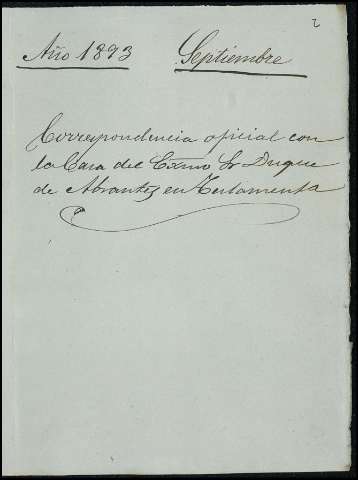 2
Año 1893 Septiembre
Correspondencia oficial con
la Casa del Exmo Sr Duque
de Abrantes en Testamenta